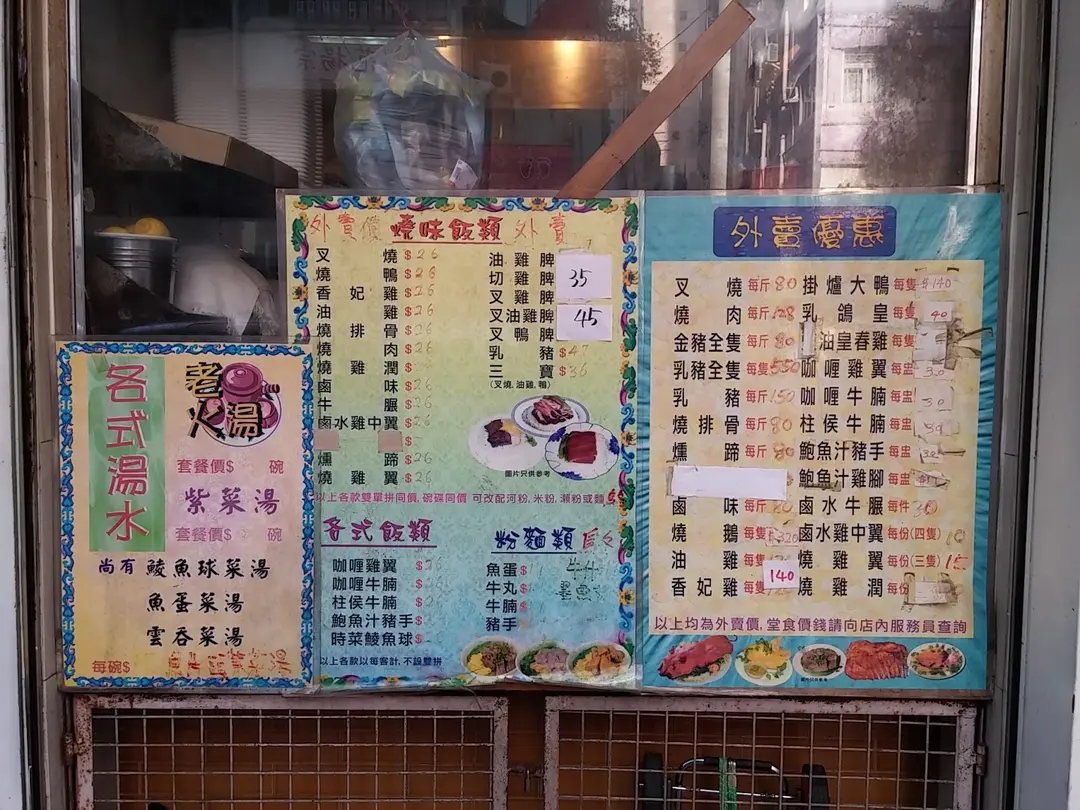 各式湯水
老火湯
套餐價$ 碗
紫菜湯
套餐價$ 碗
尚有 鯪魚球菜湯
魚蛋菜湯
雲吞菜湯
每碗$
外賣價 燒味飯類 外賣
叉燒 $26
燒鴨 $28
香妃雞 $26
油雞 $26
燒排骨 $26
燒肉 $26
燒雞潤 $
鹵味 $26
牛𦟌 $26
鹵水雞中翼 $26
$
燻蹄 $26
燒雞翼 $26
油雞脾
切雞脾
35
叉雞脾
叉油雞脾
45
叉鴨脾
乳豬 $47
三寶 $36
(叉燒,油雞,鴨)
圖片只供參考
以上各款雙單拼同價,碗碟同價 可改配河粉,米粉,瀨粉或麵
各式飯類
咖喱雞翼 $
咖喱牛腩 $
柱侯牛腩 $
鮑魚汁豬手 $
時菜鯪魚球 $
以上各款以每客計,不設雙拼
粉麵類
魚蛋 $
牛丸 $
牛腩 $
豬手 $
外賣優惠
叉燒 每斤 80
燒肉 每斤 128
金豬全隻 每斤 80
乳豬全隻 每隻 550
乳豬 每斤 150
燒排骨 每斤 80
燻蹄 每斤 80
鹵味 每斤 80
燒鵝 每隻 $320
油雞 每隻
香妃雞 每隻
140
掛爐大鴨 每隻 $140
乳鴿皇 每隻 40
油皇春雞 每隻
咖喱雞翼 每盅 30
咖喱牛腩 每盅 30
柱侯牛腩 每盅 30
鮑魚汁豬手 每盅 30
鮑魚汁雞腳 每盅
鹵水牛𦟌 每件 30
鹵水雞中翼 每份(四隻) 10
燒雞翼 每份(三隻) 15
燒雞潤 每份
以上均為外賣價,堂食價錢請向店內服務員查詢
圖片只供參考